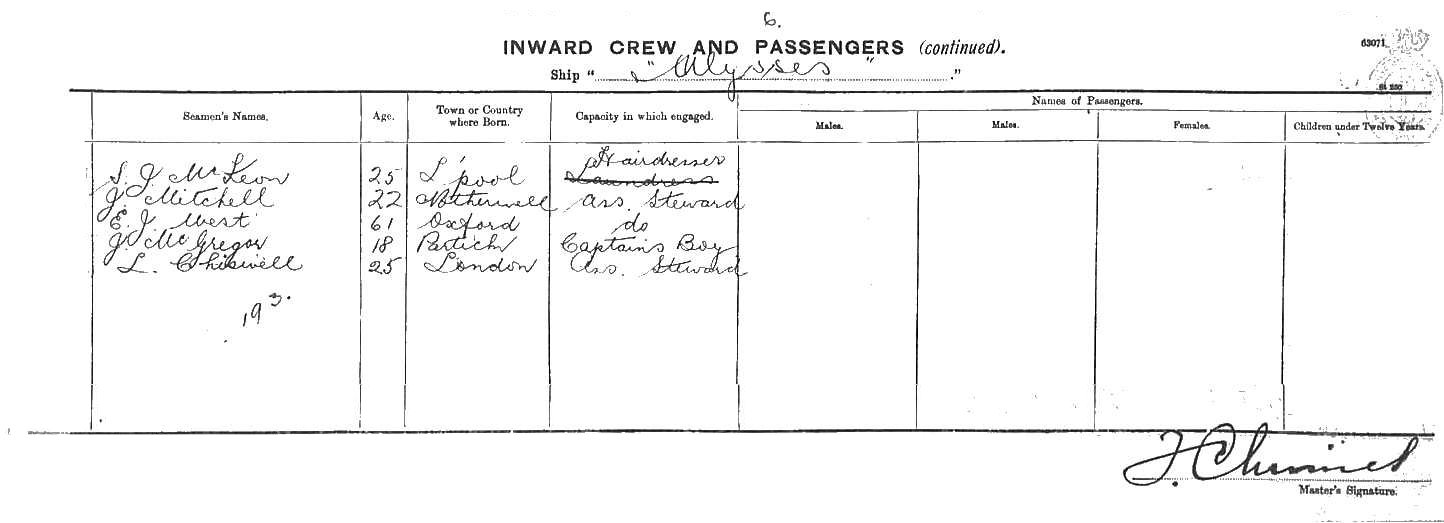 6.
INWARD CREW AND PASSENGERS (continued).
63071
Ship " "Ulysses" ."
Seamen's Names. Age. Town or Country where Born. Capacity in which engaged. Names of Passengers.
Males. Males. Females. Children under Twelve Years.
Hairdresser
S. J. McLeon 25 L'pool Laundress
J. Mitchell 22 Motherwell Ass. Steward
E. J. West 61 Oxford do
J. McGregor 18 Partick Captains Boy
L. Chiswell 25 London Ass. Steward
193.
Master's Signature.